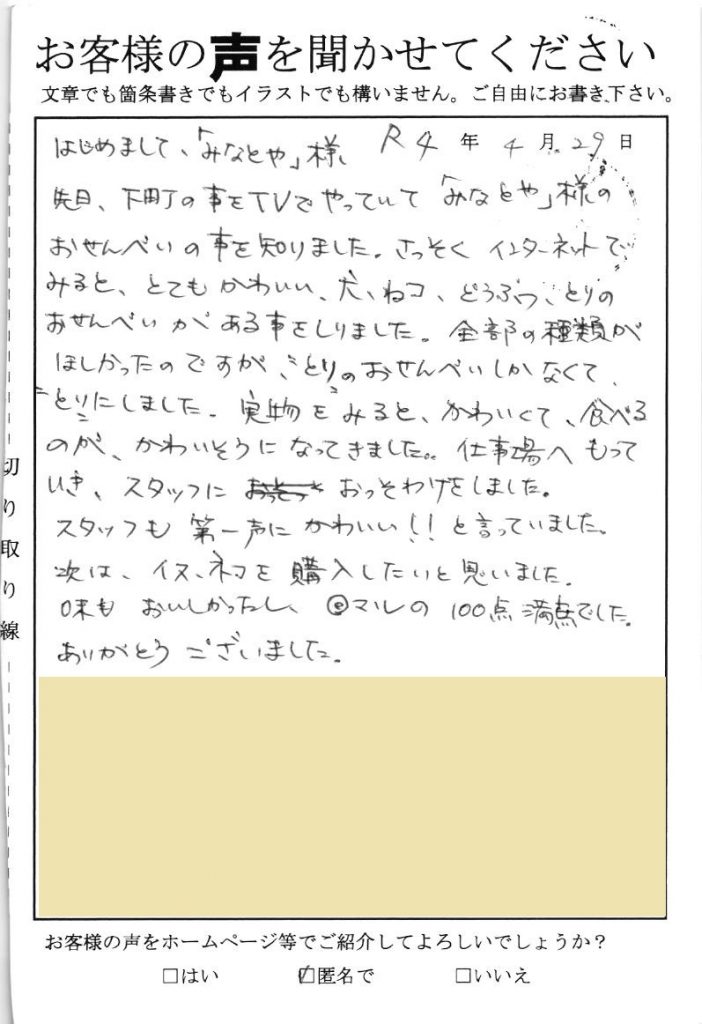 お客様の声を聞かせてください
文章でも箇条書きでもイラストでも構いません。ご自由にお書き下さい。
R4年4月29日
はじめまして、「みなとや」様、
先日、下関の事をTVでやっていて「みなとや」様の
おせんべいの事を知りました。さっそくインターネットで
みると、とてもかわいい、犬、ねコ、どうぶつ、ことりの
おせんべいがある事をしりました。全部の種類が
ほしかったのですが、ことりのおせんべいしかなくて、
ことりにしました。実物をみると、かわいくて、食べる
のが、かわいそうになってきました。仕事場へもって
いき、スタッフにおっそわけをしました。
スタッフも第一声にかわいい!!と言っていました。
次は、イヌ、ネコを購入したいと思いました。
味もおいしかったし、マルの100点満点でした。
ありがとうございました。
切り取り線
お客様の声をホームページ等でご紹介してよろしいでしょうか?
□はい ☑匿名で □いいえ